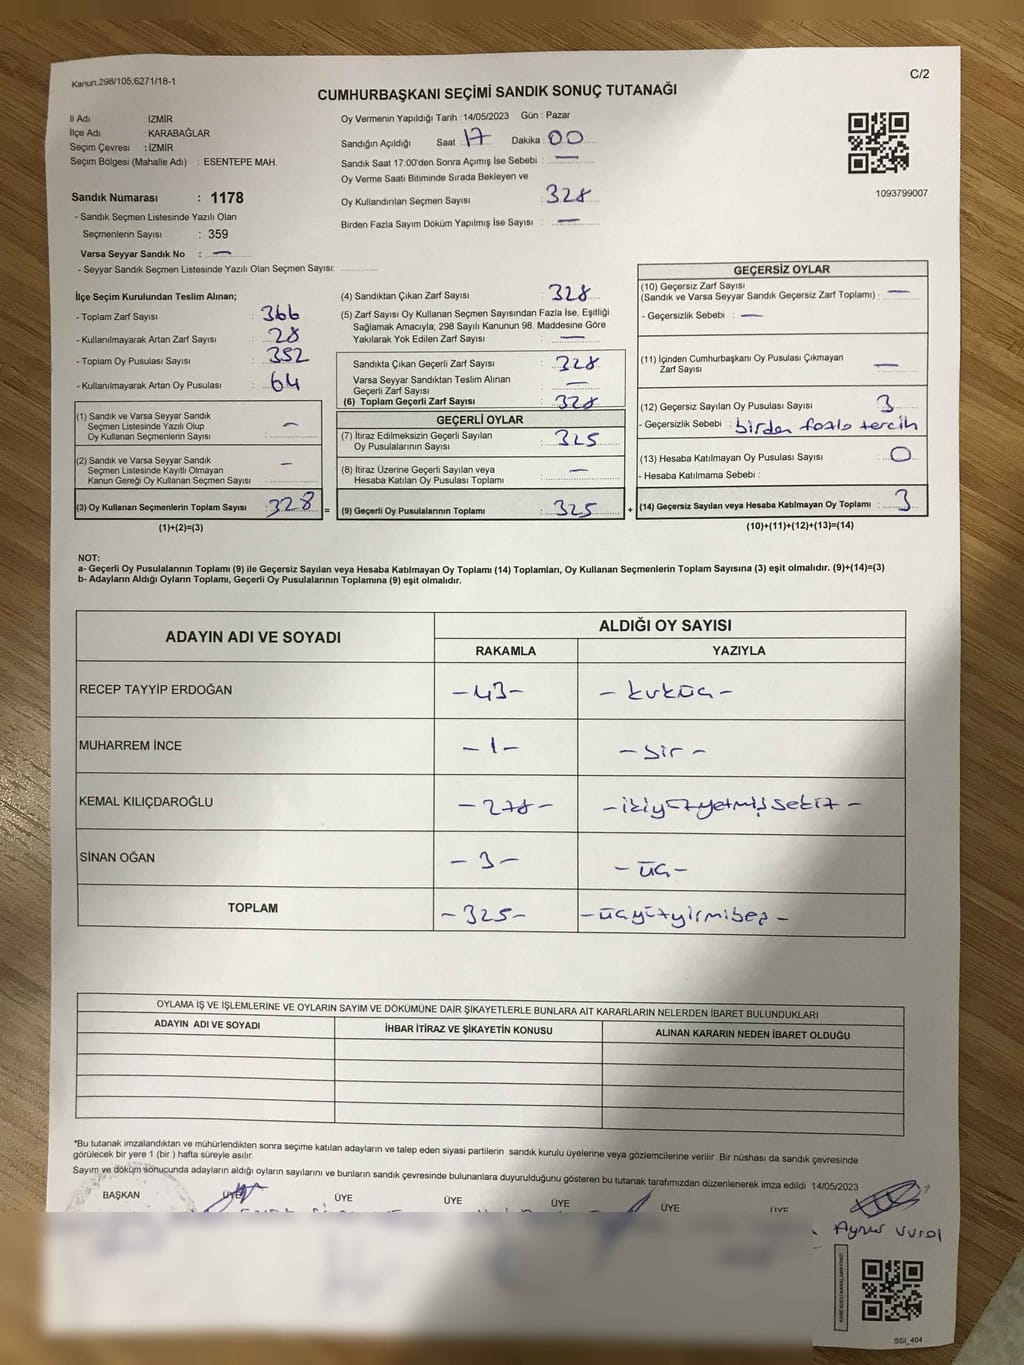 Kanun,298/105,6271/18-1
C/2
CUMHURBAŞKANI SEÇİMİ SANDIK SONUÇ TUTANAĞI
İl Adı İZMİR
İlçe Adı KARABAĞLAR
Seçim Çevresi : İZMİR
Seçim Bölgesi (Mahalle Adı) : ESENTEPE MAH.
Sandık Numarası : 1178
- Sandık Seçmen Listesinde Yazılı Olan
Seçmenlerin Sayısı : 359
Varsa Seyyar Sandık No : —
- Seyyar Sandık Seçmen Listesinde Yazılı Olan Seçmen Sayısı:
Oy Vermenin Yapıldığı Tarih : 14/05/2023 Gün : Pazar
Sandığın Açıldığı Saat 17 Dakika : 00
Sandık Saat 17:00'den Sonra Açımış İse Sebebi : —
Oy Verme Saati Bitiminde Sırada Bekleyen ve
Oy Kullandırılan Seçmen Sayısı : 328
Birden Fazla Sayım Döküm Yapılmış İse Sayısı : —
1093799007
İlçe Seçim Kurulundan Teslim Alınan;
- Toplam Zarf Sayısı : 366
- Kullanılmayarak Artan Zarf Sayısı : 28
- Toplam Oy Pusulası Sayısı : 352
- Kullanılmayarak Artan Oy Pusulası : 64
(1) Sandık ve Varsa Seyyar Sandık
Seçmen Listesinde Yazılı Olup
Oy Kullanan Seçmenlerin Sayısı : —
(2) Sandık ve Varsa Seyyar Sandık
Seçmen Listesinde Kayıtlı Olmayan
Kanun Gereği Oy Kullanan Seçmen Sayısı : —
(3) Oy Kullanan Seçmenlerin Toplam Sayısı : 328 =
(1)+(2)=(3)
(4) Sandıktan Çıkan Zarf Sayısı : 328
(5) Zarf Sayısı Oy Kullanan Seçmen Sayısından Fazla İse, Eşitliği
Sağlamak Amacıyla; 298 Sayılı Kanunun 98. Maddesine Göre
Yakılarak Yok Edilen Zarf Sayısı : —
Sandıkta Çıkan Geçerli Zarf Sayısı : 328
Varsa Seyyar Sandıktan Teslim Alınan
Geçerli Zarf Sayısı : —
(6) Toplam Geçerli Zarf Sayısı : 328
GEÇERLİ OYLAR
(7) İtiraz Edilmeksizin Geçerli Sayılan
Oy Pusulalarının Sayısı : 325
(8) İtiraz Üzerine Geçerli Sayılan veya
Hesaba Katılan Oy Pusulası Toplamı : —
(9) Geçerli Oy Pusulalarının Toplamı : 325 +
GEÇERSİZ OYLAR
(10) Geçersiz Zarf Sayısı
(Sandık ve Varsa Seyyar Sandık Geçersiz Zarf Toplamı) : —
- Geçersizlik Sebebi : —
(11) İçinden Cumhurbaşkanı Oy Pusulası Çıkmayan
Zarf Sayısı : —
(12) Geçersiz Sayılan Oy Pusulası Sayısı : 3
- Geçersizlik Sebebi : birden fazla tercih
(13) Hesaba Katılmayan Oy Pusulası Sayısı : 0
- Hesaba Katılmama Sebebi :
(14) Geçersiz Sayılan veya Hesaba Katılmayan Oy Toplamı : 3
(10)+(11)+(12)+(13)=(14)
NOT:
a- Geçerli Oy Pusulalarının Toplamı (9) ile Geçersiz Sayılan veya Hesaba Katılmayan Oy Toplamı (14) Toplamları, Oy Kullanan Seçmenlerin Toplam Sayısına (3) eşit olmalıdır. (9)+(14)=(3)
b- Adayların Aldığı Oyların Toplamı, Geçerli Oy Pusulalarının Toplamına (9) eşit olmalıdır.
ADAYIN ADI VE SOYADI ALDIĞI OY SAYISI
RAKAMLA YAZIYLA
RECEP TAYYİP ERDOĞAN -43- - kırküç -
MUHARREM İNCE -1- - bir -
KEMAL KILIÇDAROĞLU -278- - ikiyüzyetmişsekiz -
SİNAN OĞAN -3- - üç -
TOPLAM -325- - üçyüzyirmibeş -
OYLAMA İŞ VE İŞLEMLERİNE VE OYLARIN SAYIM VE DÖKÜMÜNE DAİR ŞİKAYETLERLE BUNLARA AİT KARARLARIN NELERDEN İBARET BULUNDUKLARI
ADAYIN ADI VE SOYADI İHBAR İTİRAZ VE ŞİKAYETİN KONUSU ALINAN KARARIN NEDEN İBARET OLDUĞU
*Bu tutanak imzalandıktan ve mühürlendikten sonra seçime katılan adayların ve talep eden siyasi partilerin sandık kurulu üyelerine veya gözlemcilerine verilir .Bir nüshası da sandık çevresinde
görülecek bir yere 1 (bir ) hafta süreyle asılır.
Sayım ve döküm sonucunda adayların aldığı oyların sayılarını ve bunların sandık çevresinde bulunanlara duyurulduğunu gösteren bu tutanak tarafımızdan düzenlenerek imza edildi 14/05/2023
BAŞKAN ÜYE ÜYE ÜYE ÜYE ÜYE ÜYE
SSI_404